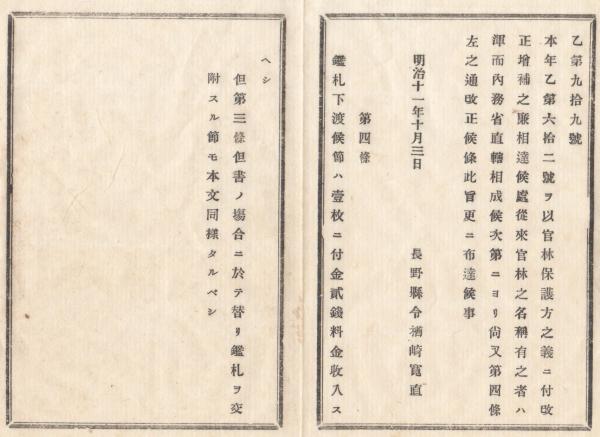 乙第九拾九號
本年乙第六拾二號ヲ以官林保護方之義ニ付改
正增補之廉相達候處從來官林之名稱有之者ハ
渾而內務省直轄相成候次第ニヨリ尙又第四條
左之通改正候條此旨更ニ布達候事
明治十一年十月三日
長野縣令楢崎寬直
第四條
鑑札下渡候節ハ壹枚ニ付金貳錢料金收入ス
ヘシ
但第三條但書ノ塲合ニ於テ替リ鑑札ヲ交
附スル節モ本文同樣タルベシ